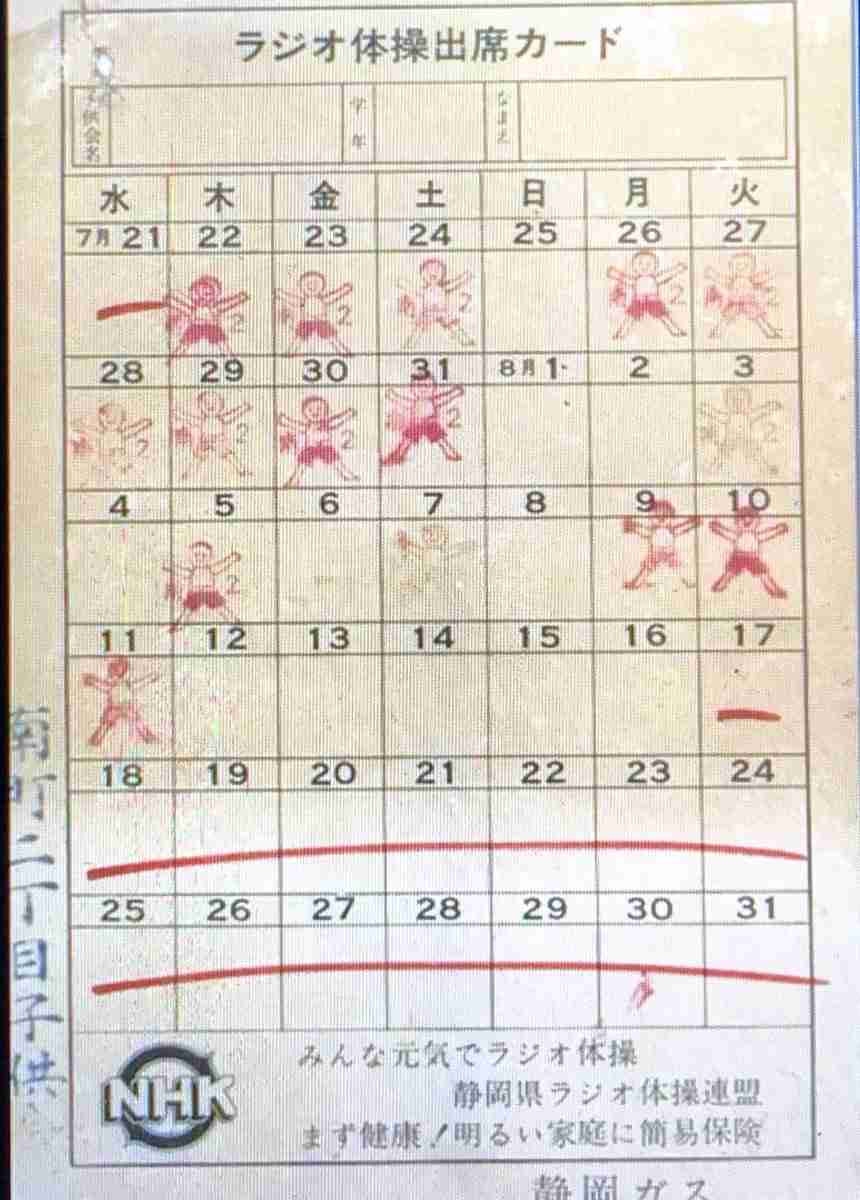 ラジオ体操出席カード
子供会名 学年 なまえ
水 木 金 土 日 月 火
7月 21 22 23 24 25 26 27
28 29 30 31 8月 1 2 3
4 5 6 7 8 9 10
11 12 13 14 15 16 17
18 19 20 21 22 23 24
25 26 27 28 29 30 31
南町二丁目子供
NHK
みんな元気でラジオ体操
静岡県ラジオ体操連盟
まず健康!明るい家庭に簡易保険
静岡ガス